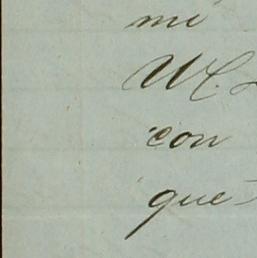 mi
con
que